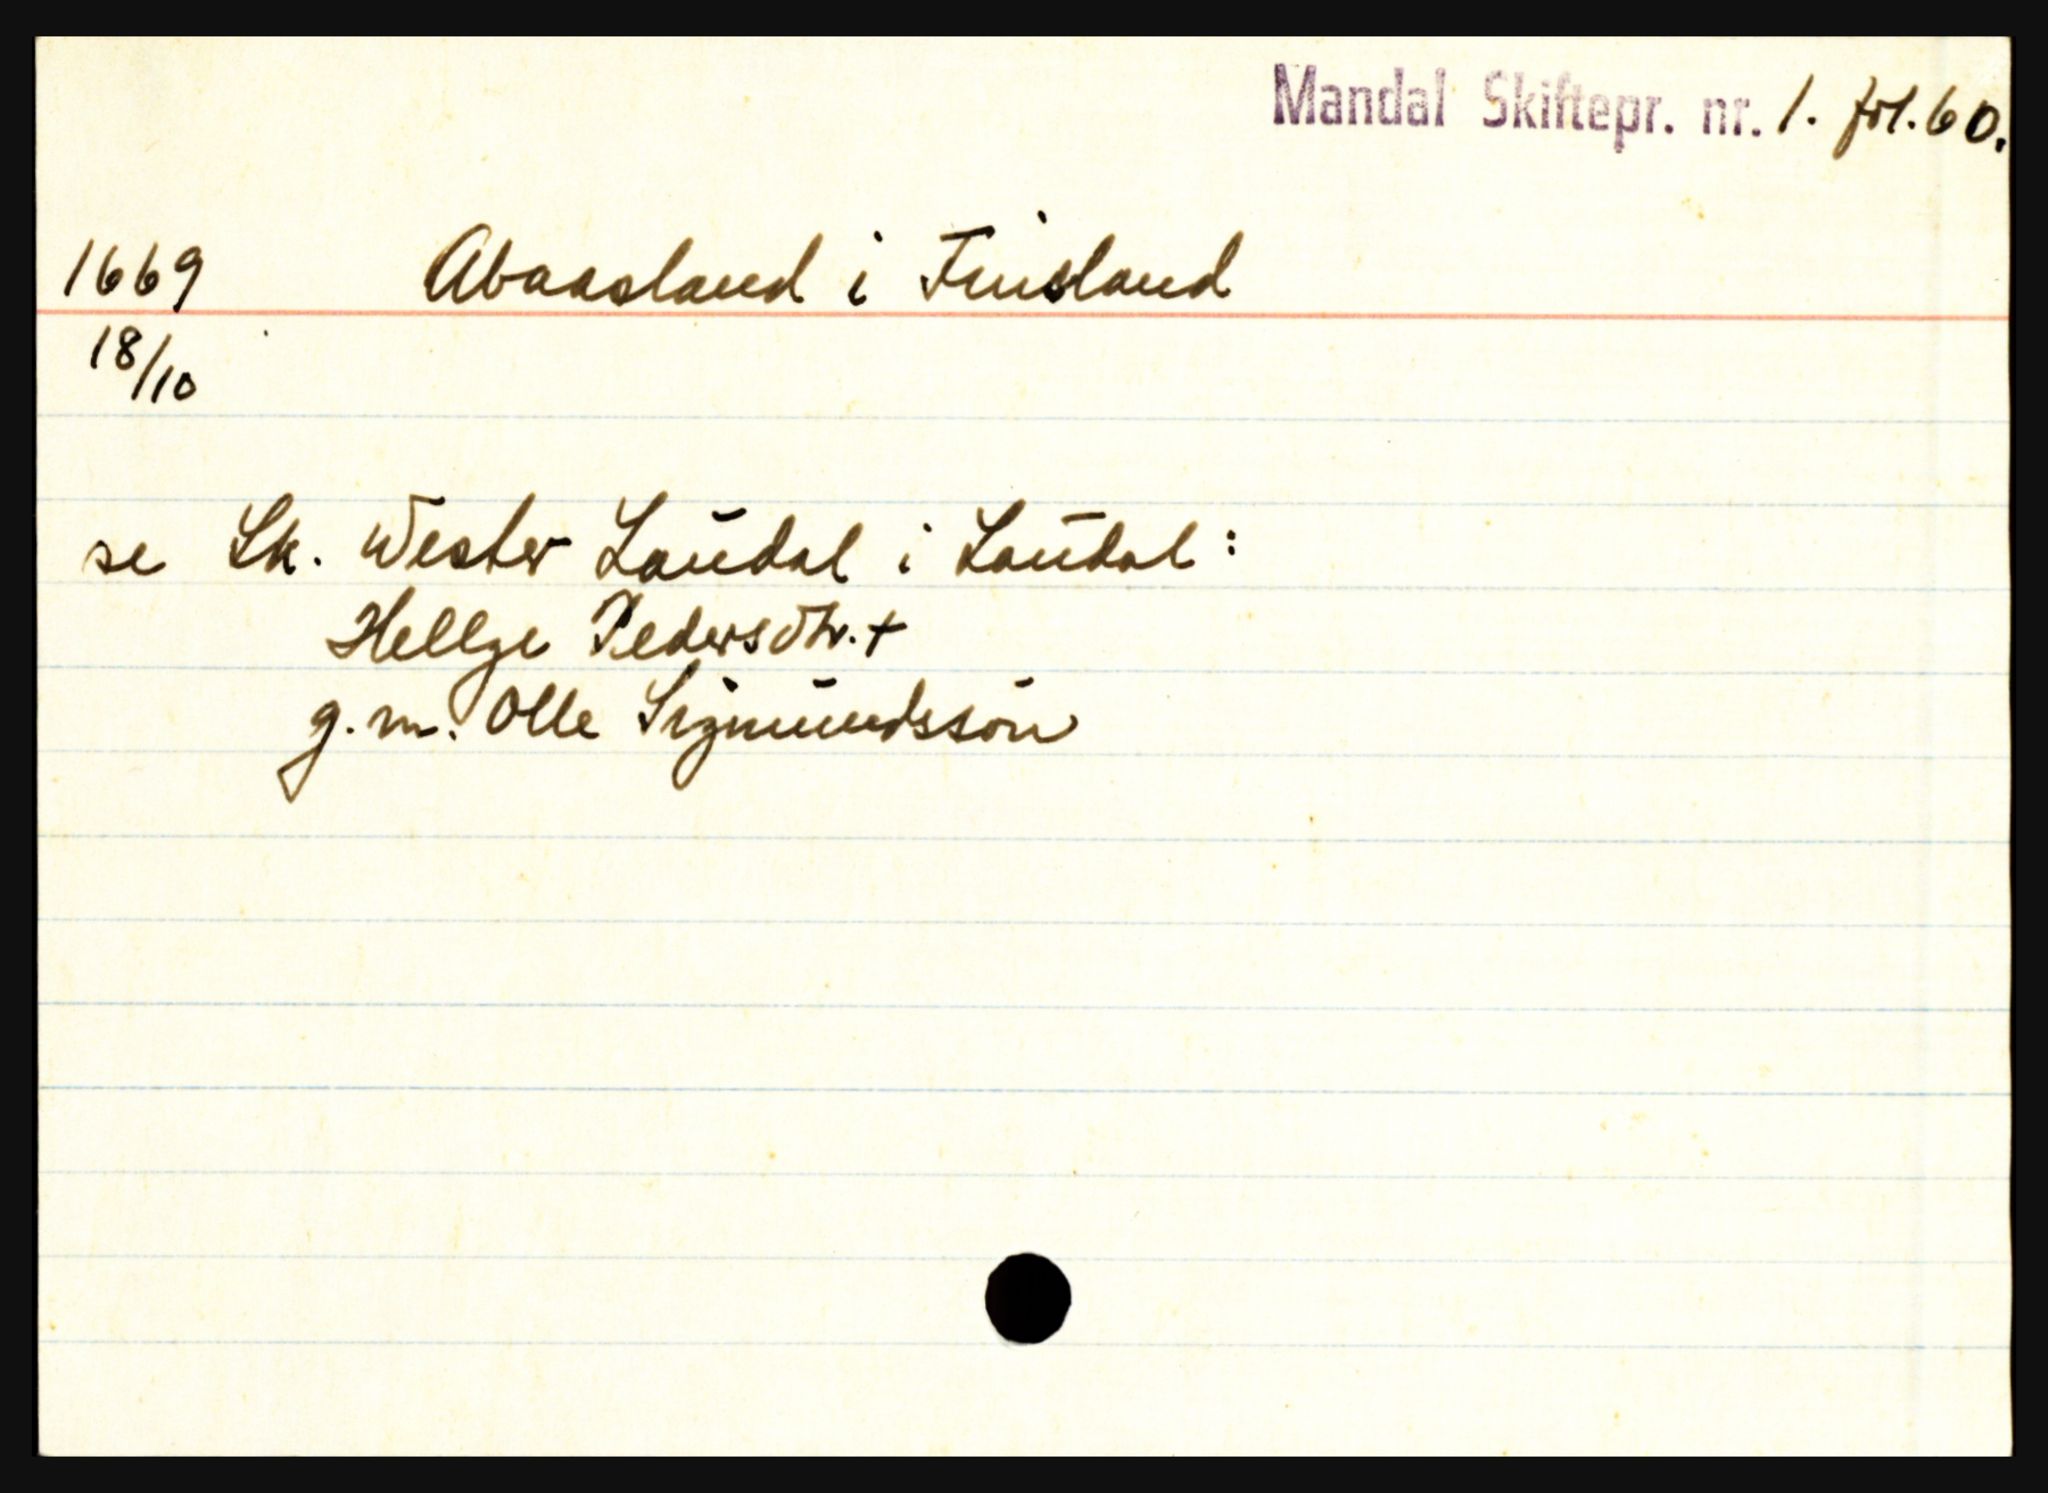 Mandal Skiftepr. nr. 1. fol. 60.
1669 Abaasland i Finsland
18/10
se Sk. Wester Laudal i Laudal:
Hellge Pedersdtr. +
g. m. Olle Sigmundssön